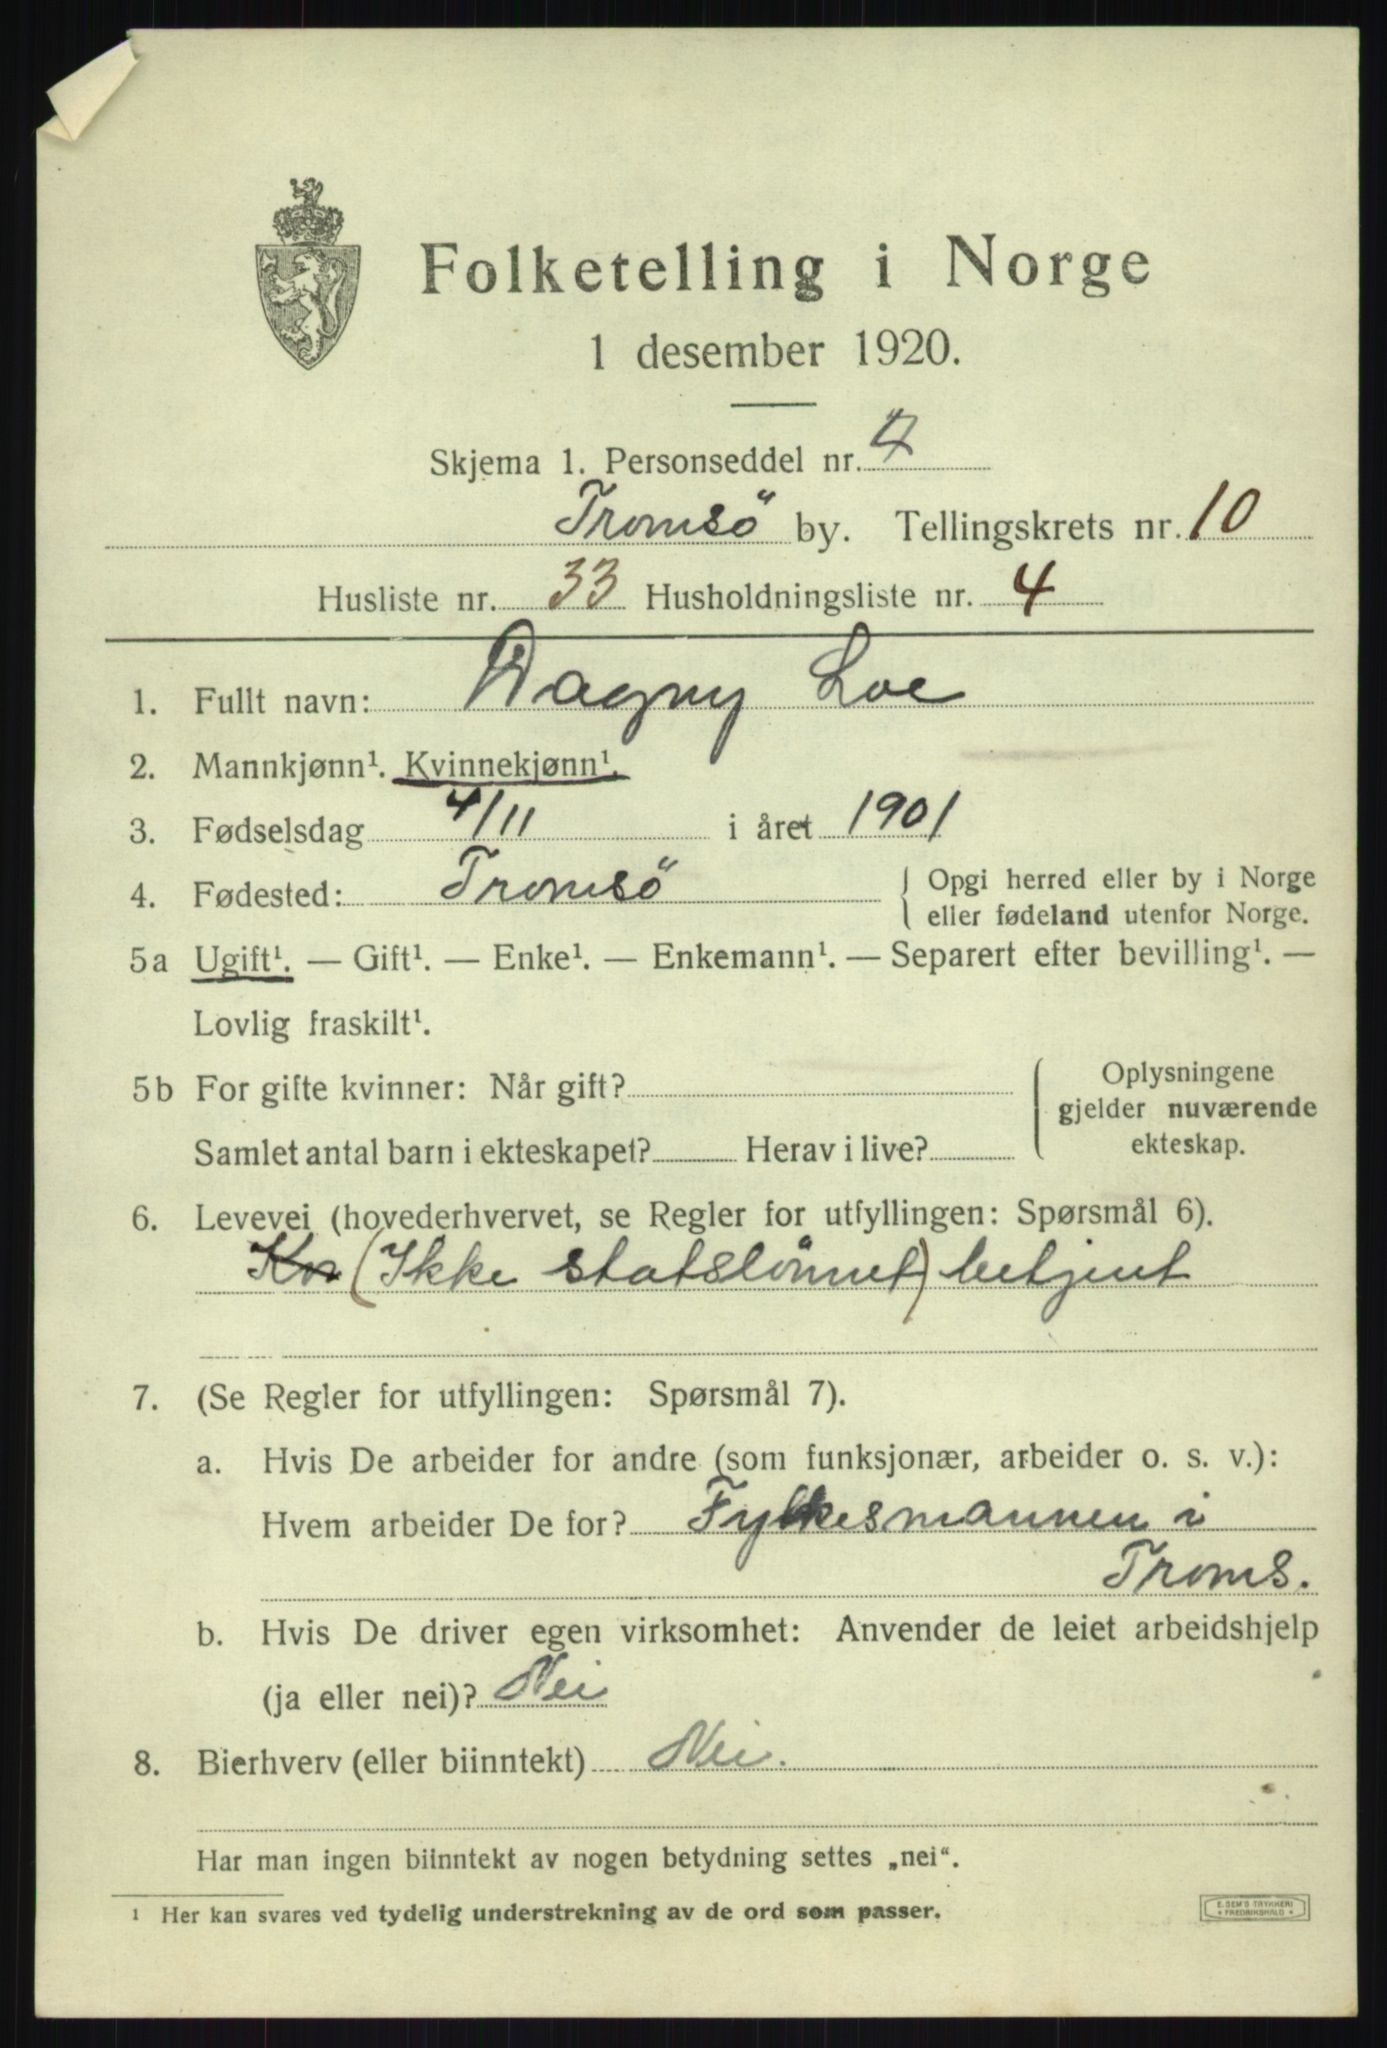 Folketelling i Norge
1 desember 1920.
Skjema 1. Personseddel nr. 4
Tromsö by. Tellingskrets nr. 10
Husliste nr. 33 Husholdningsliste nr. 4
1. Fullt navn: Dagny Loe
2. Mannkjønn¹. Kvinnekjønn¹.
3. Fødselsdag 4/11 i året 1901
4. Fødested: Tromsö { Opgi herred eller by i Norge
eller fødeland utenfor Norge.
5a Ugift¹. — Gift¹. — Enke¹. — Enkemann¹. — Separert efter bevilling¹. —
Lovlig fraskilt¹.
5b For gifte kvinner: Når gift?
Samlet antal barn i ekteskapet? Herav i live?
Oplysningene
gjelder nuværende
ekteskap.
6. Levevei (hovederhvervet, se Regler for utfyllingen: Spørsmål 6).
Kon (Ikke statslönnet) betjent
7. (Se Regler for utfyllingen: Spørsmål 7).
a. Hvis De arbeider for andre (som funksjonær, arbeider o. s. v.):
Hvem arbeider De for? Fylkesmannen i
Troms.
b. Hvis De driver egen virksomhet: Anvender de leiet arbeidshjelp
(ja eller nei)? Nei
8. Bierhverv (eller biinntekt) Nei.
Har man ingen biinntekt av nogen betydning settes „nei“.
¹ Her kan svares ved tydelig understrekning av de ord som passer.
E. SEM'S TRYKKERI
FREDRIKSHALD